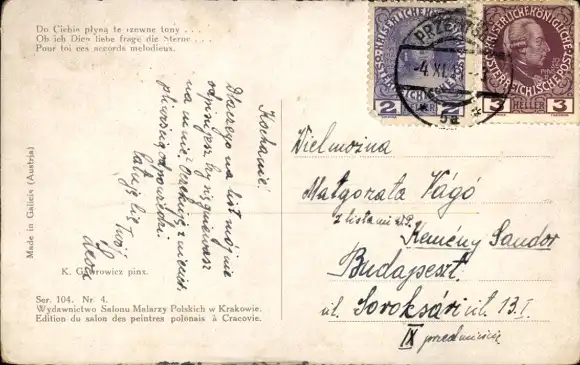 Do Ciebie płyną te rzewne tony . . .
Ob ich Dich liebe frage die Sterne . . .
Pour toi ces accords melodieux.
KAISERLICHE KÖNIGLICHE
ÖSTERREICHISCHE POST
2 HELLER 2
KAISERLICHE KÖNIGLICHE
ÖSTERREICHISCHE POST
3 HELLER 3
-4 XI
5a
Kochanie!
Dlaczego na list mój nie
odpisujesz, czy się gniewasz
na mnie? Oczekuję
odpowiedzi.
Całuję Cię Twój
Made in Galicia (Austria)
K. Górowicz pinx.
Ser. 104. Nr. 4.
Wydawnictwo Salonu Malarzy Polskich w Krakowie.
Edition du salon des peintres polonais à Cracovie.
Wielmożna
Małgorzata Vágó
z listami WP.
Kemény Sandor
Budapeszt
ul. Soroksári ut. 13. I
IX przedmieście